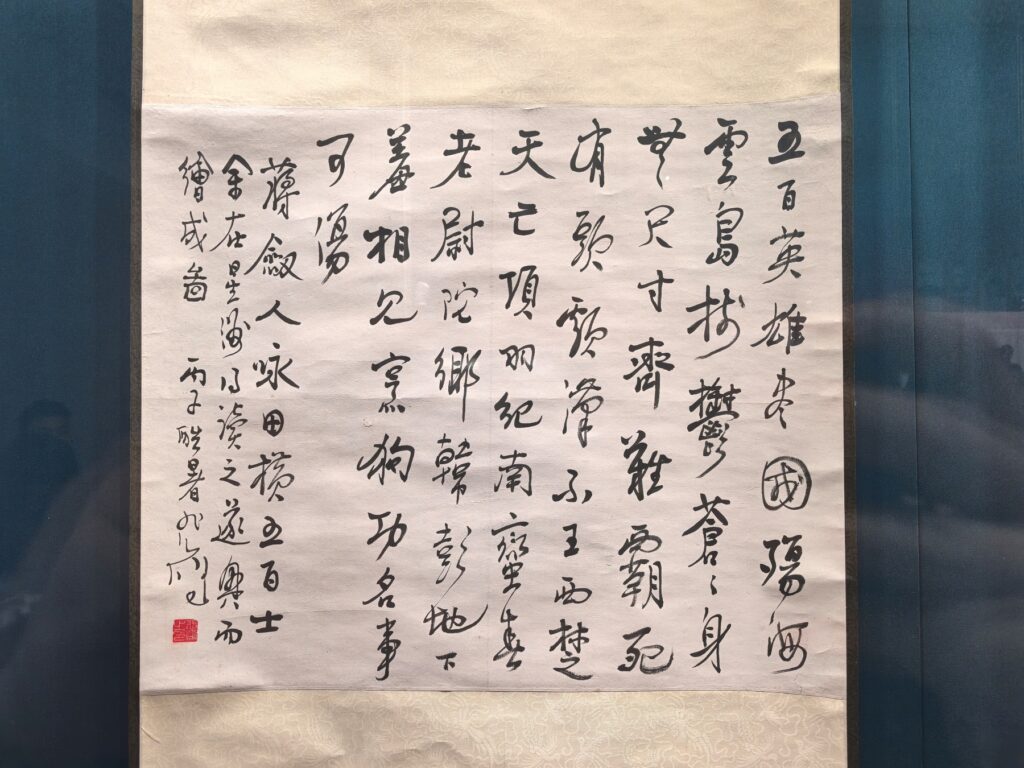 五百英雄尽國殤海
雲島樹鬱蒼〻身
無尺寸齊難霸死
有頭顱漢不王西楚
天亡項羽紀南蠻春
老尉陀鄉韓彭地下
羞相見烹狗功名事
可傷
蔣劒人詠田橫五百士
余在星洲得讀之遂興而
繪成啚 丙子酷暑